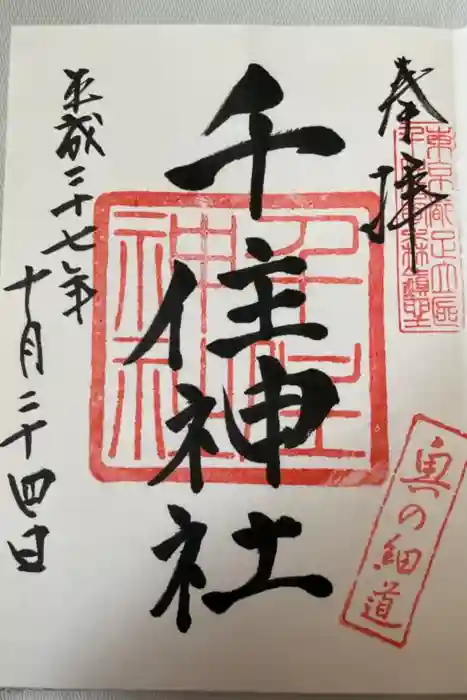 奉拝
東京都足立区
千住神社
千住神社
奥の細道
平成二十七年
十月二十四日